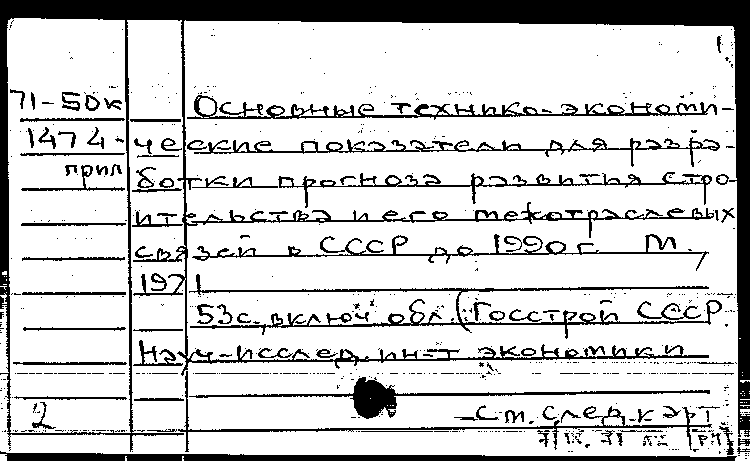 71-50к
1474-
прил
Основные технико-экономи-
ческие показатели для разра-
ботки прогноза развития стро-
ительства и его межотраслевых
связей в СССР до 1990г. М.,
1971
53с., включ. обл. (Госстрой СССР.
Науч-исслед. ин-т экономики
2
см. след. карт